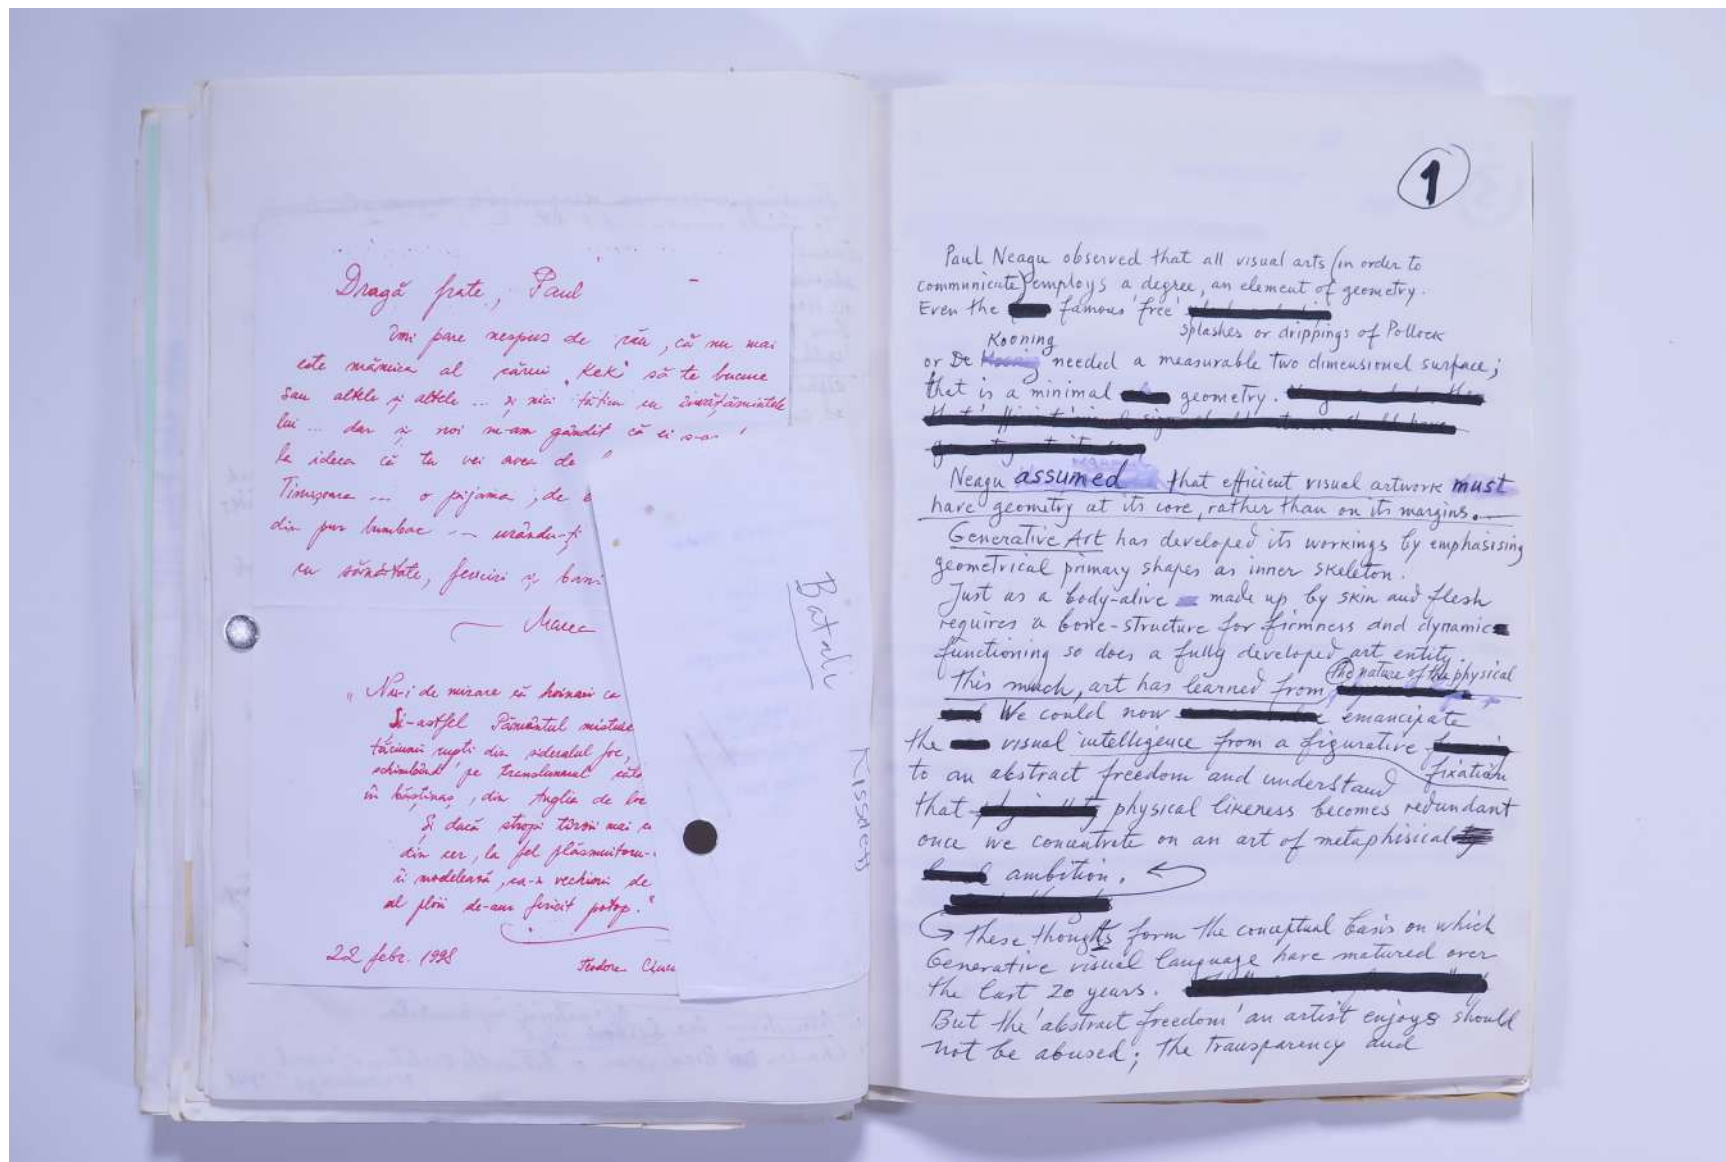 Dragă frate, Paul
Îmi pare nespus de rău, că nu mai
este mămica al cărui "Keki" să te bucure
sau altele și altele ... și nici tăticu cu învățămintele
lui ... dar și noi ne-am gândit că ei s-ar
la ideea că tu vei avea de
Timișoara ... o pijama, de
din pur bumbac -- urându-ți
cu sănătate, fericiri și bani
"Nu-i de mirare că hoinari ca
Și-astfel Pământul mistuie
tăciunii rupți din sideralul foc,
schimbând pe translunarul
în băștinaș, din Anglia de loc
Și dacă stropi târzii mai
din cer, la fel plăsmuitoru-
îi modelează, ca-n vechimi de
al ploii de-aur fericit potop."
22 febr. 1998
Teodora
Batali
1
Paul Neagu observed that all visual arts (in order to
communicate) employs a degree, an element of geometry.
Even the famous 'free'
splashes or drippings of Pollock
Kooning
or De needed a measurable two dimensional surface;
that is a minimal geometry.
Neagu assumed that efficient visual artwork must
have geometry at its core, rather than on its margins.
Generative Art has developed its workings by emphasising
geometrical primary shapes as inner skeleton.
Just as a body-alive made up by skin and flesh
requires a bone-structure for firmness and dynamic
functioning so does a fully developed art entity.
the nature of the physical
This much, art has learned from
We could now emancipate
the visual intelligence from a figurative
fixation
to an abstract freedom and understand
that physical likeness becomes redundant
once we concentrate on an art of metaphisical
ambition.
These thoughts form the conceptual basis on which
Generative visual language have matured over
the last 20 years.
But the 'abstract freedom' an artist enjoys should
not be abused; the transparency and